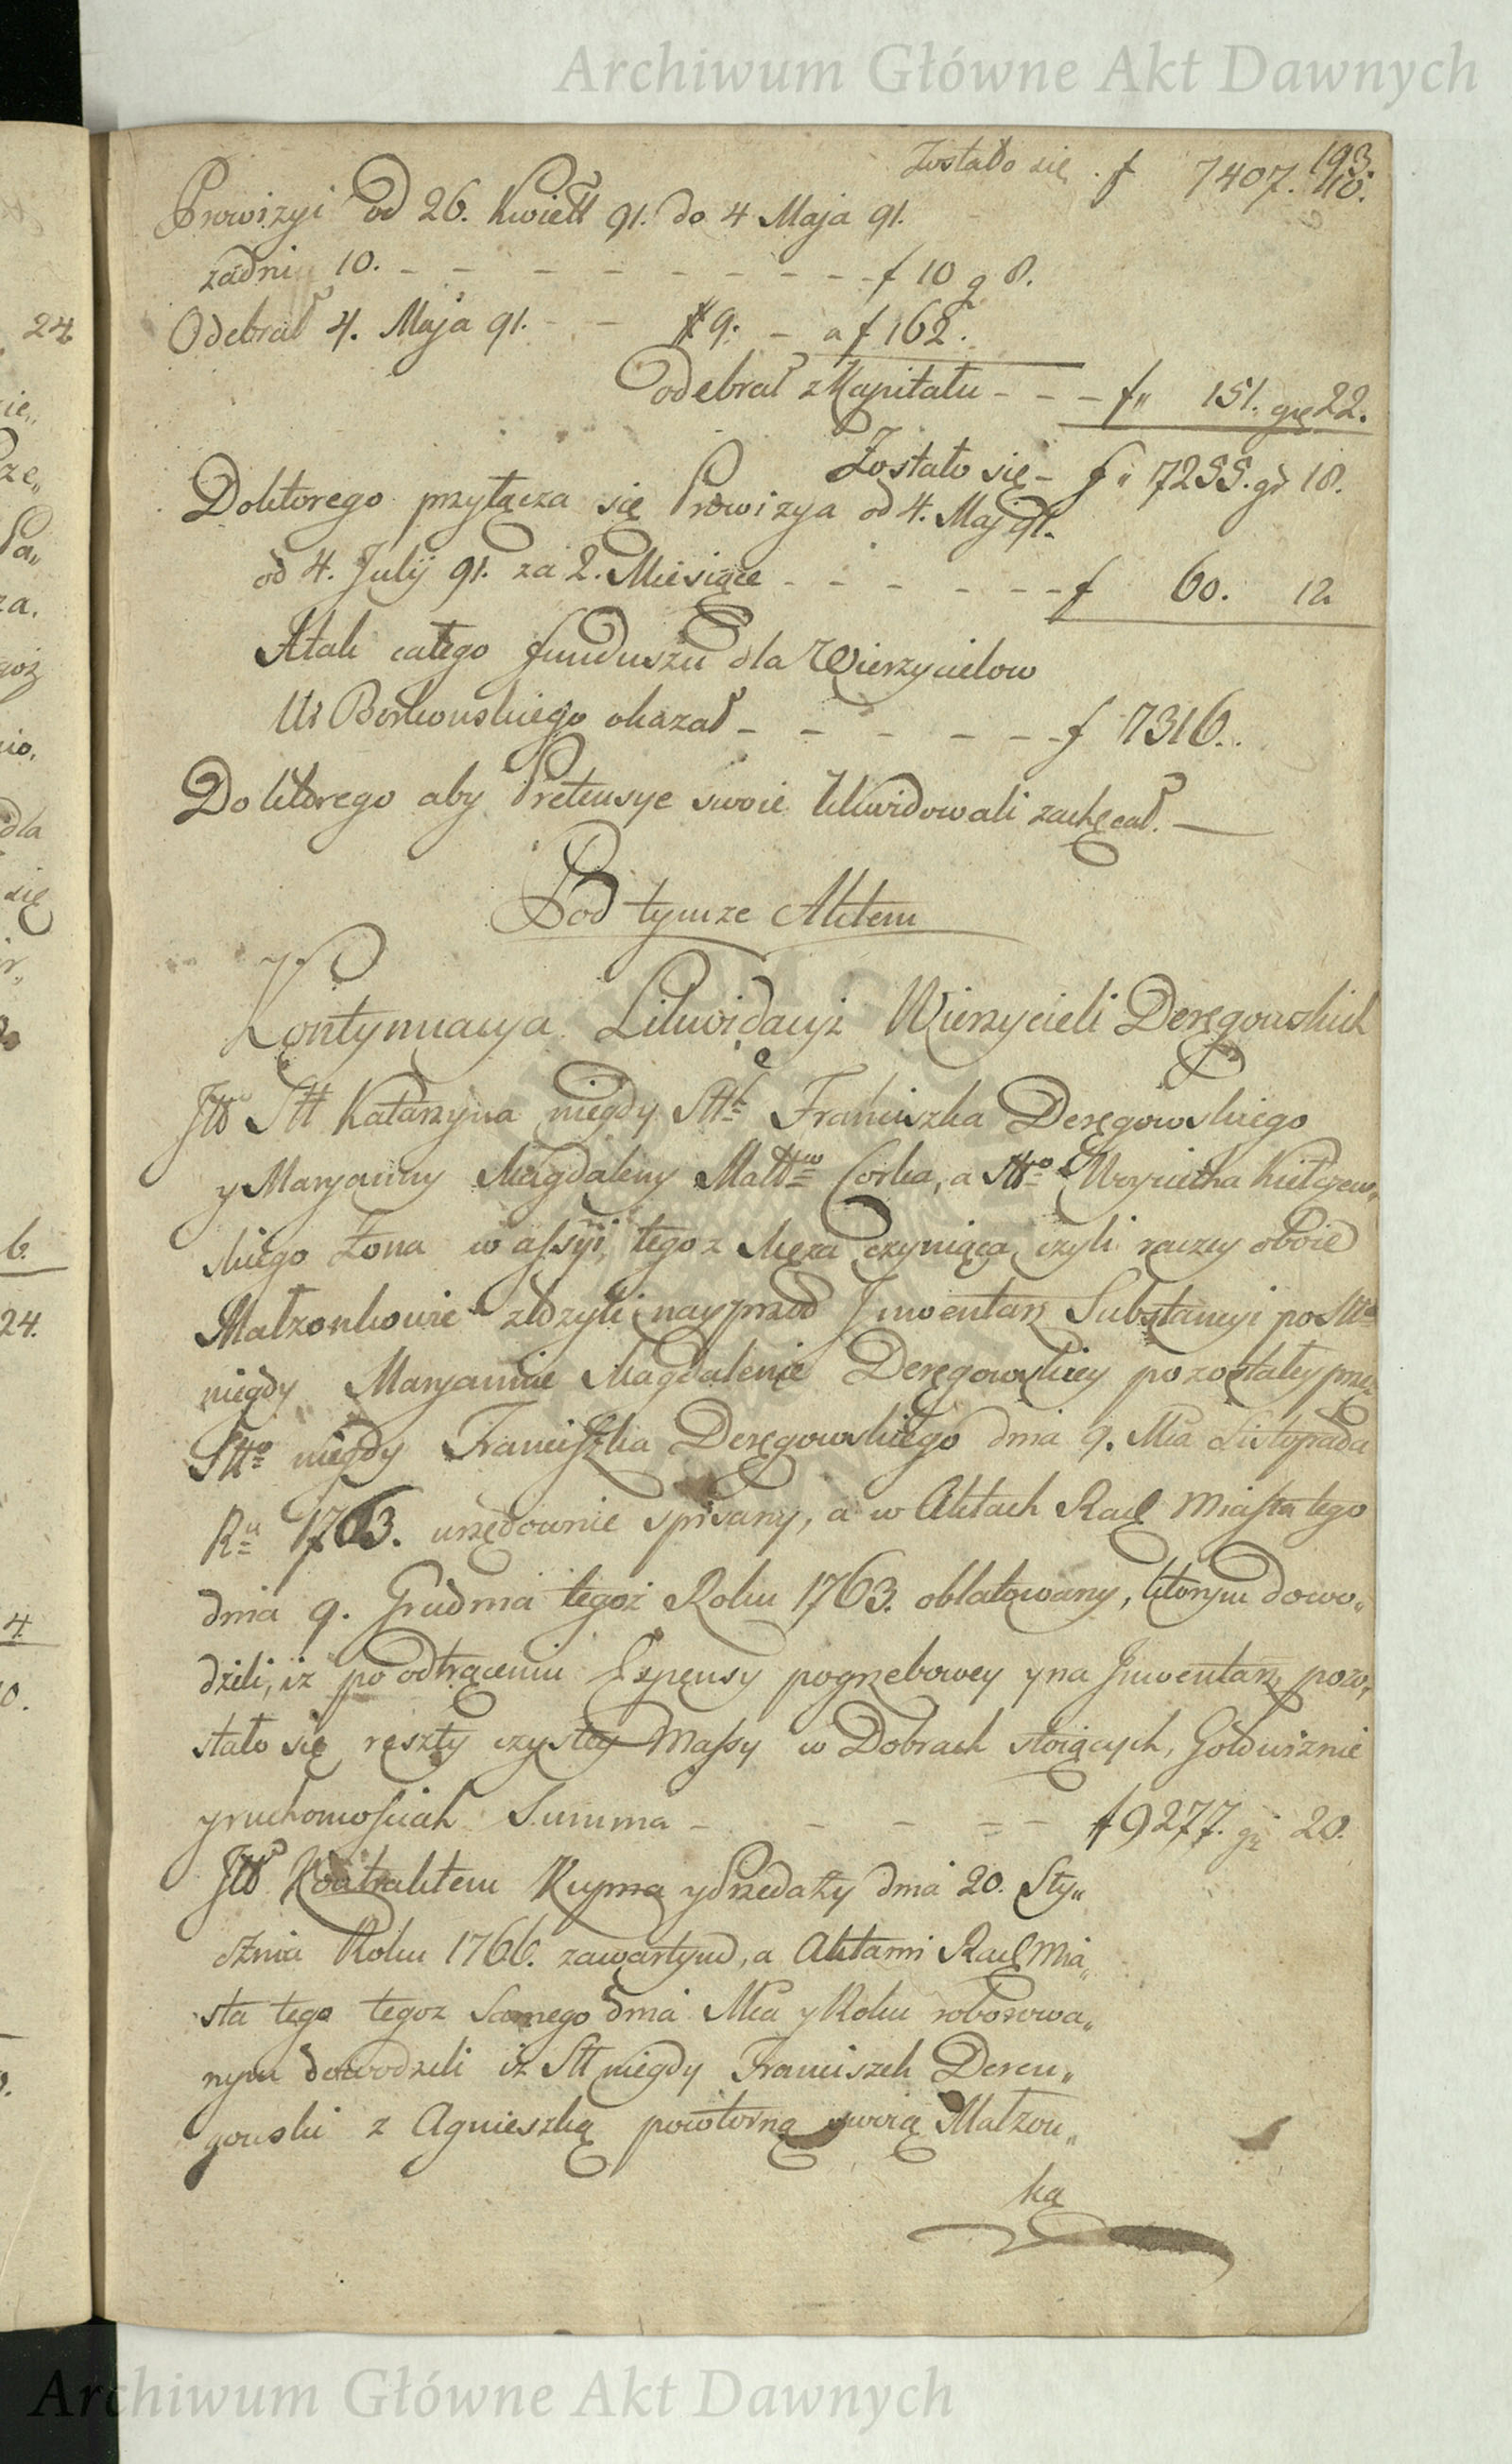 Archiwum Główne Akt Dawnych
193.
Zostało się . f 7407. 10.
Prowizyi od 26. Kwiett 91. do 4 Maja 91.
za dni 10. - - - - - - - - - f 10 g 8.
Odebrał 4. Maja 91. - - # 9. - a f 162.
odebrał z Kapitału - - - f„ 151. gr 22.
Zostało się - f„ 7255. gr 18.
Do ktorego przyłącza się Prowizya od 4. Maj 91.
od 4. Julij 91. za 2. Miesiące - - - - - - f 60. 12
A tak całego funduszu dla Wierzycielow
Ur Borkowskiego okazał - - - - - - f 7316..
Do ktorego aby Pretensye swoie likwidowali zachęcał. —
Pod tymze Aktem
Kontynuacya Likwidacyi Wierzycieli Deręgowskich
JW Stt Katarzyna niegdy Stt Franciszka Deręgowskiego
y Maryanny Magdaleny Małt Corka, a Stto Woyciecha Kiełczew„
skiego Zona w assyi, tegoz Męza czyniąca, czyli raczey oboie
Małzonkowie złozyli nayprzod Jnwentarz Substancyi po Stt
niegdy Maryannie Magdalenie Deręgowskiey pozostałey przez
Stto niegdy Franciszka Deręgowskiego dnia 9. Mca Listopada
Ru 1763. urzędownie spisany, a w Aktach Rad Miasta tego
dnia 9. Grudnia tegoż Roku 1763. oblatowany, ktorym dowo„
dzili, iz po odtrąceniu Expensy pogrzebowey y na Jnwentarz pozo„
stało się reszty czystey Massy w Dobrach stoiących, Gotowiznie
y ruchomościah Summa - - - - - f 9277. gr 20.
JW Kontraktem Kupna y Przedaży dnia 20. Sty„
cznia Roku 1766. zawartym, a Aktami Rad Mia„
sta tego tegoz samego dnia Mca y Roku roborowa„
nym dowodzili iz Stt niegdy Franciszek Deren„
gowski z Agnieszką powtorną swoią Małzon„
ką
24.
ie„
ze„
Pa„
za.
goż
nio.
dla
się
r„
6.
24.
4.
0.
Archiwum Główne Akt Dawnych